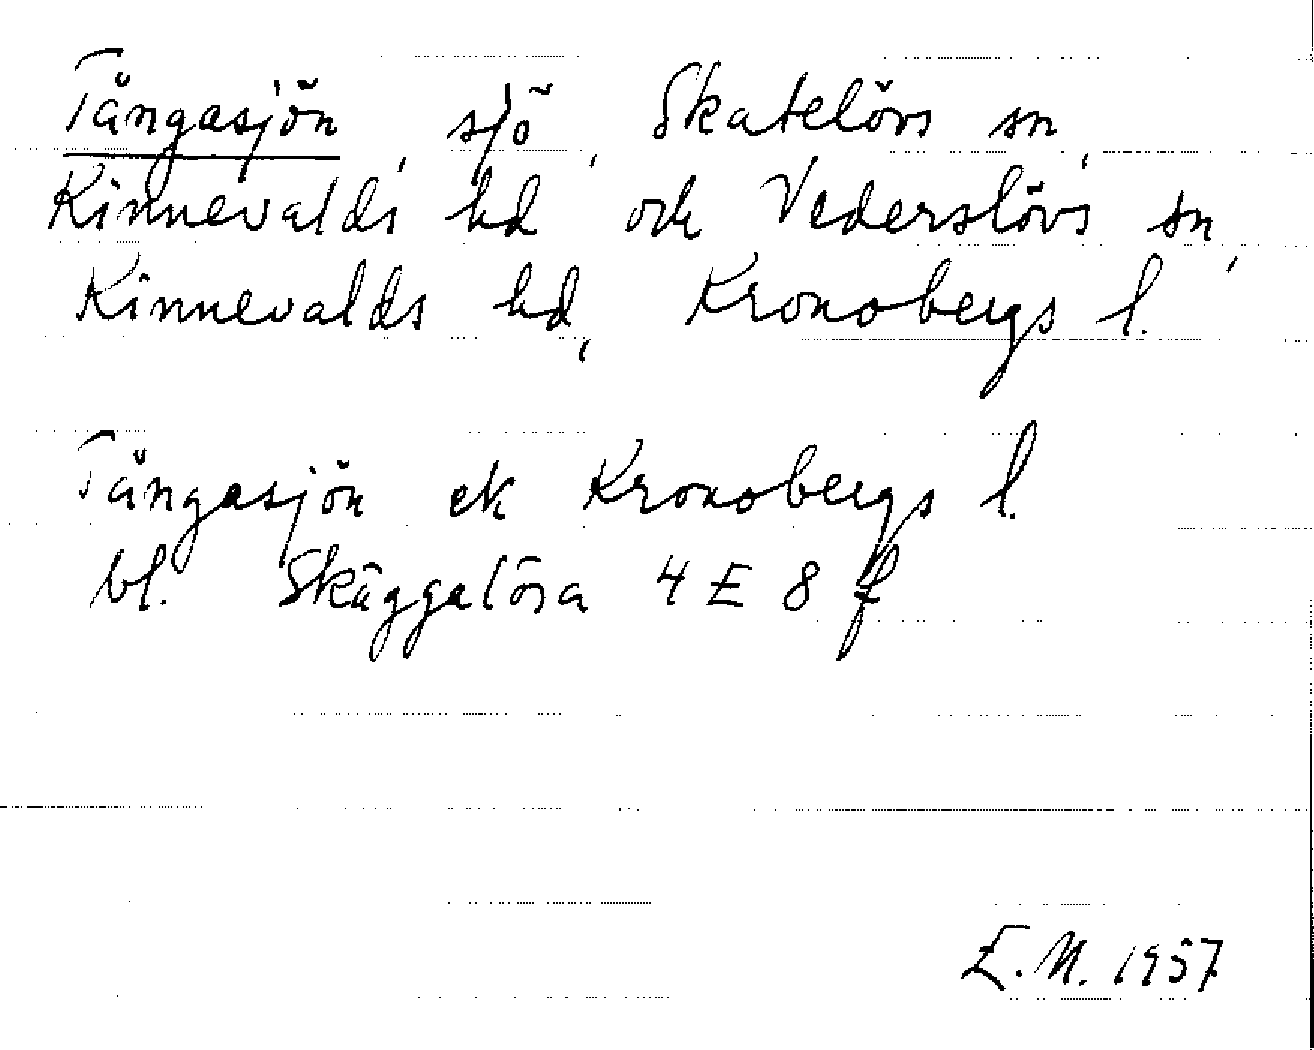 Tångasjön, sjö, Skatelövs sn,
Kinnevalds hd och Vederslövs sn,
Kinnevalds hd, Kronobergs l.
Tångasjön ek Kronobergs l.
bl. Skäggalösa 4 E 8 f
E.N. 1957